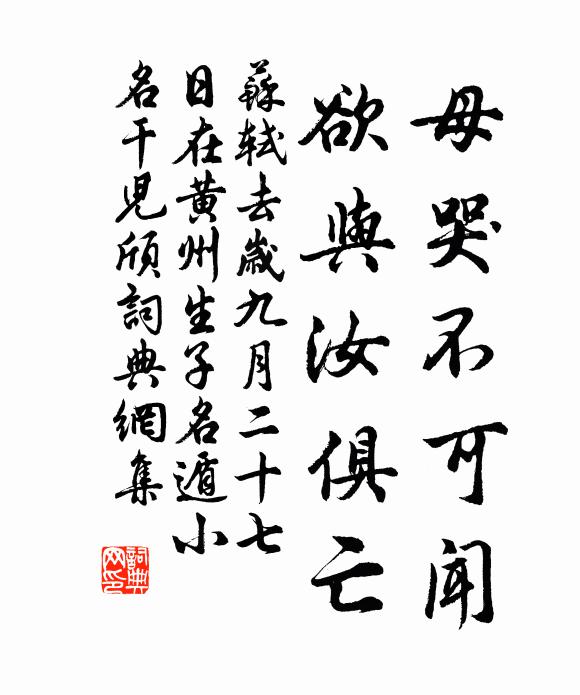 母哭不可闻
欲與汝俱亡
蘇軾去歲九月二十七
日在黄州生子名遁小
名干児頎詞典網集
詞典
网印